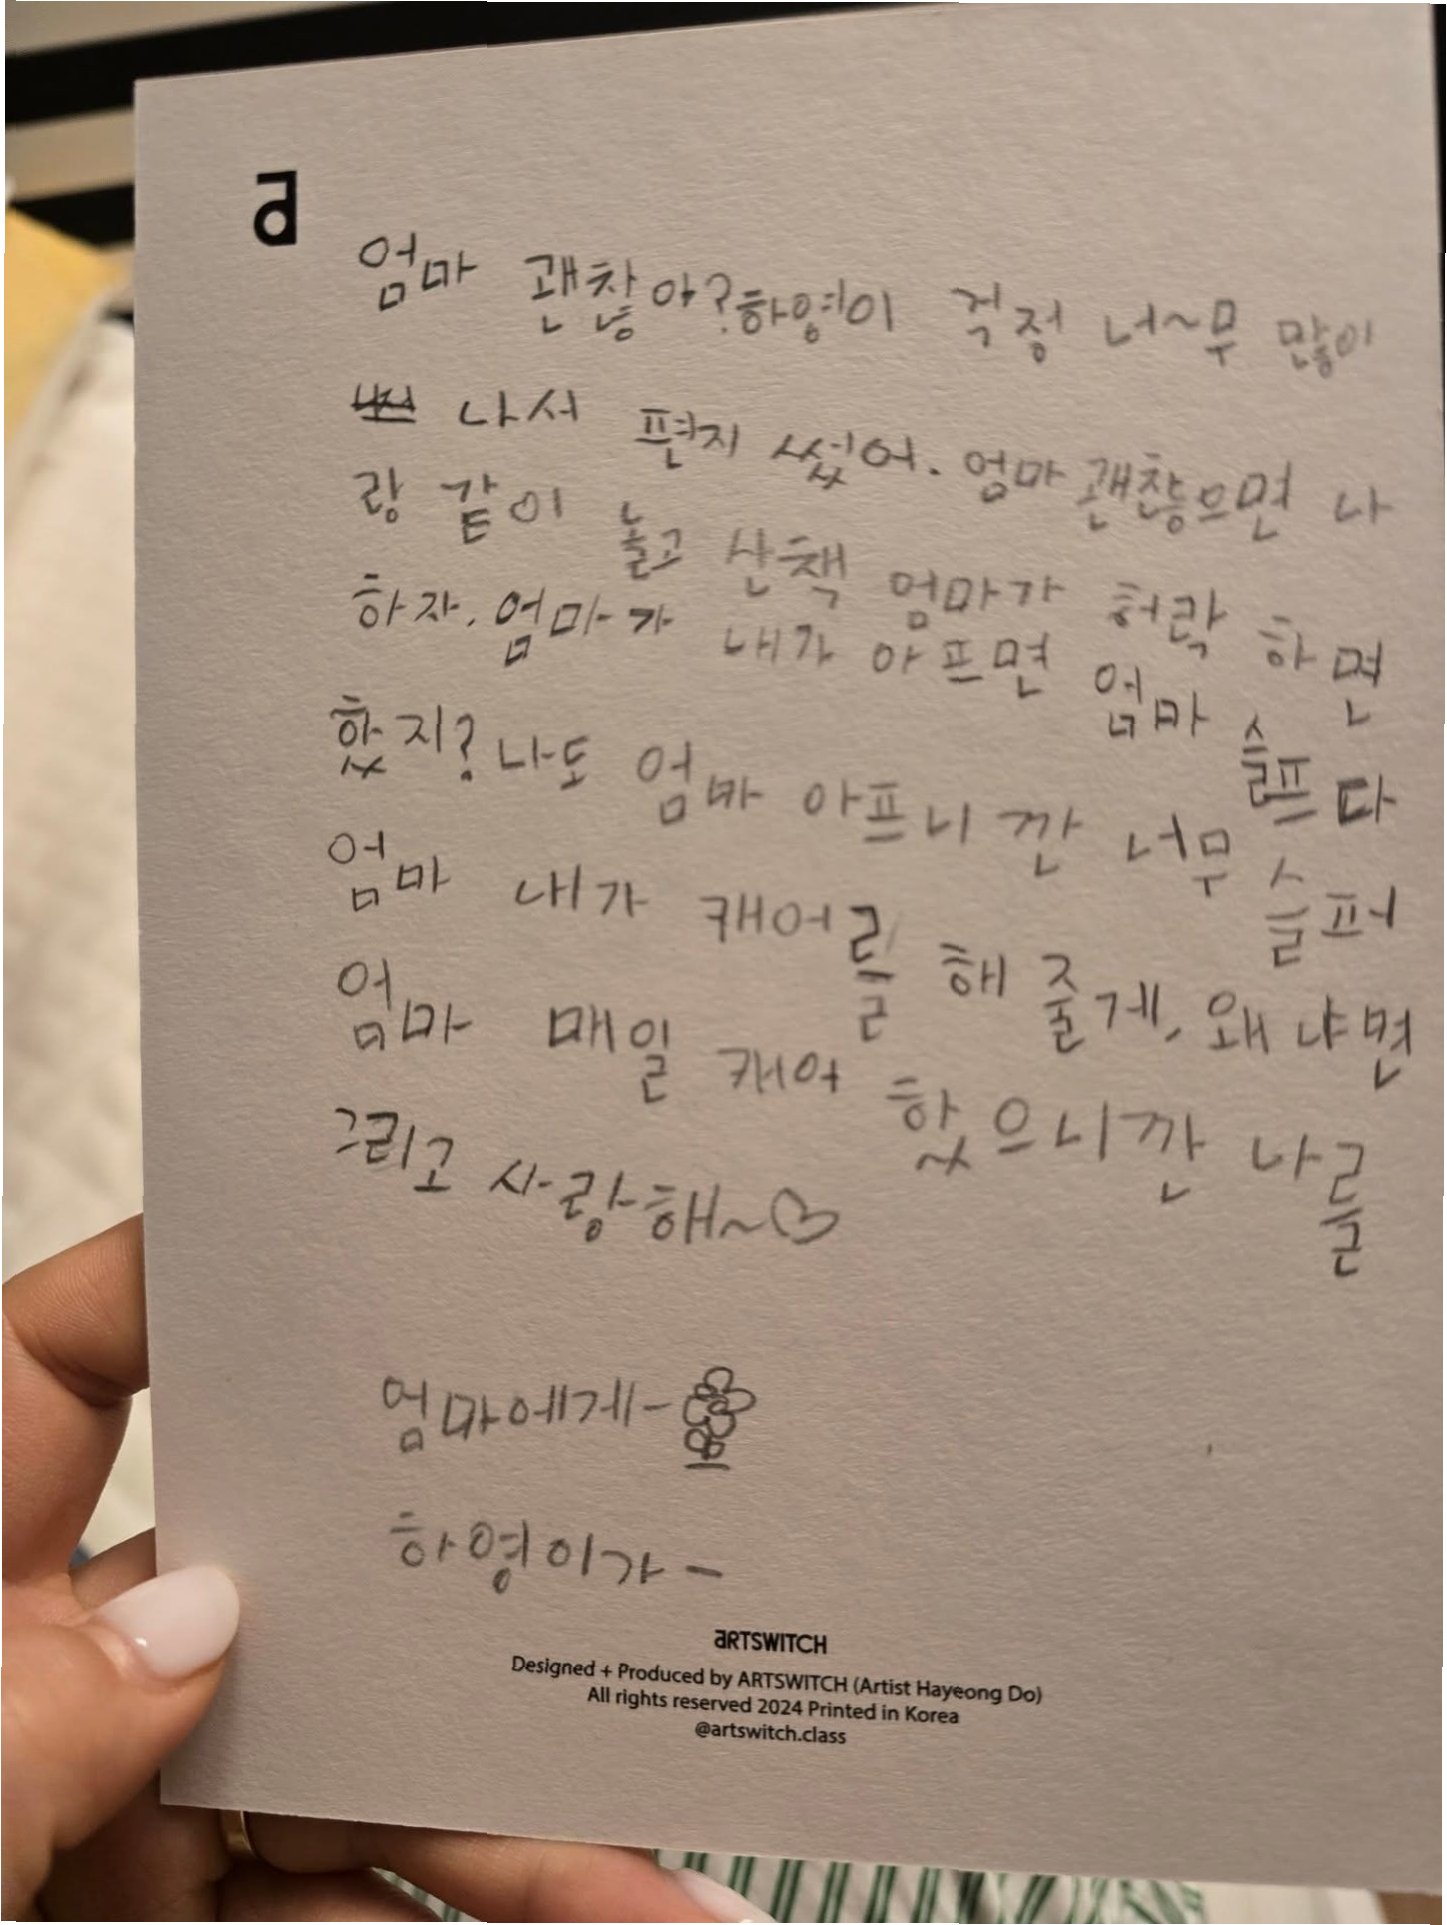 a
엄마 괜찮아? 하영이 걱정 너~무 많이
나서 편지 썼어. 엄마 괜찮으면 나
랑 같이 놀고 산책 엄마가 허락 하면
하자. 엄마가 내가 아프면 엄마 슬프다
핬지? 나도 엄마 아프니깐 너무 슬퍼
엄마 내가 캐어를 해 줄게, 왜냐면
엄마 매일 캐어 핬으니깐 나를
그리고 사랑해~♡
엄마에게-
하영이가-
aRTSWITCH
Designed + Produced by ARTSWITCH (Artist Hayeong Do)
All rights reserved 2024 Printed in Korea
@artswitch.class